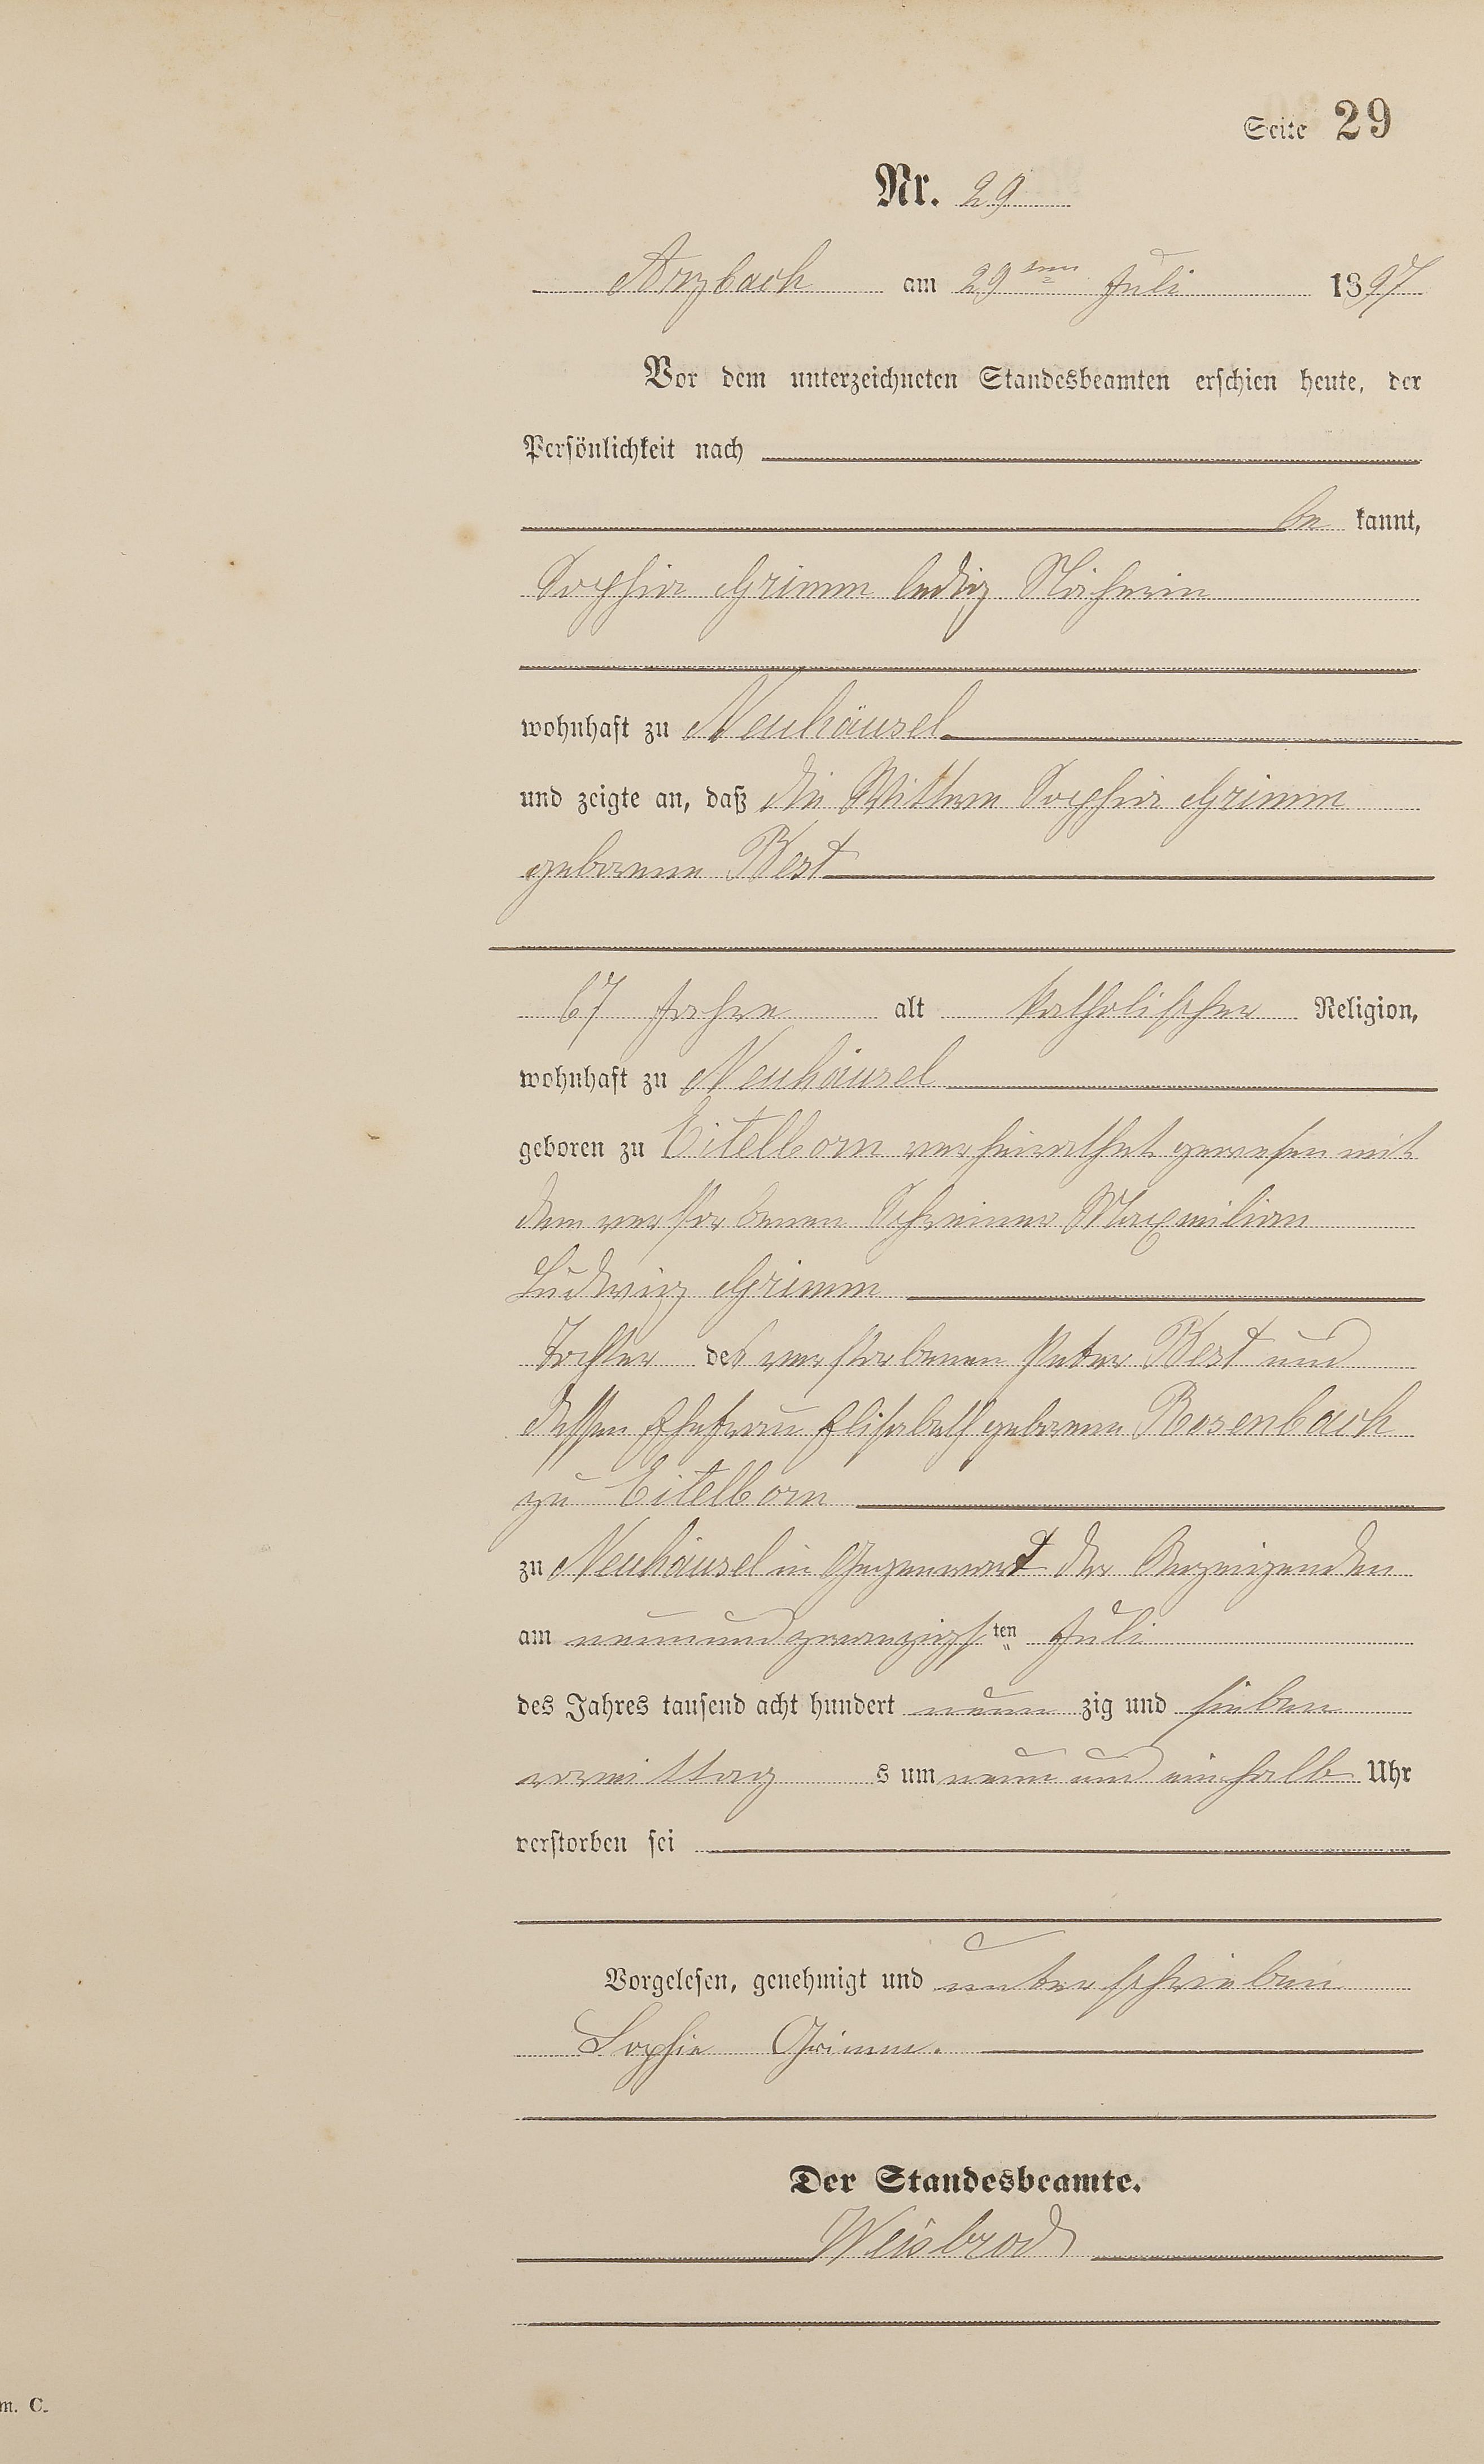 Seite 29
Nr. 29
Arzbach am 29ten Juli 1897
Vor dem unterzeichneten Standesbeamten erschien heute, der
Persönlichkeit nach
be kannt,
Sophia Grimm ledig Näherin
wohnhaft zu Neuhäusel
und zeigte an, daß die Wittwe Sophia Grimm
geborene Best
67 Jahre alt katholischer Religion,
wohnhaft zu Neuhäusel
geboren zu Eitelborn verheirathet gewesen mit
dem verstorbenen Schreiner Maxmilian
Ludwig Grimm
Tochter des verstorbenen Peter Best und
dessen Ehefrau Elisabeth geborene Rosenbach
zu Eitelborn
zu Neuhäusel in Gegenwart der Anzeigenden
am neunundzwanzigsten Juli
des Jahres tausend acht hundert neun zig und sieben
vormittag s um neun und einhalb Uhr
verstorben sei
Vorgelesen, genehmigt und unterschrieben
Sophie Grimm.
Der Standesbeamte.
Weisbrod
m. C.